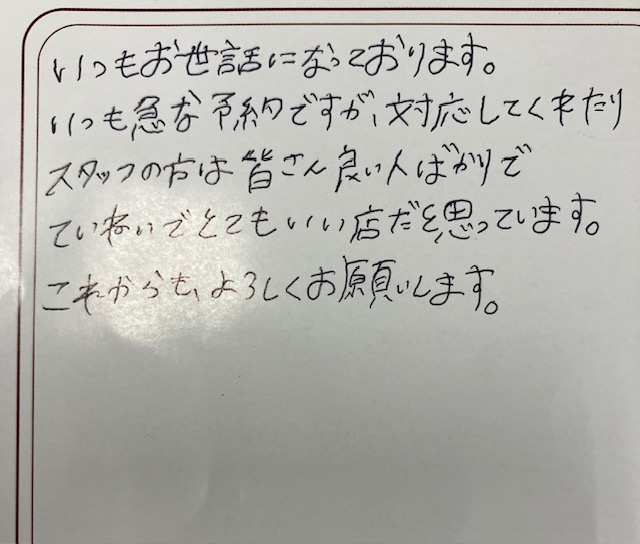 いつもお世話になっております。
いつも急な予約ですが、対応してくれたり
スタッフの方は皆さん良い人ばかりで
ていねいでとてもいい店だと思っています。
これからも、よろしくお願いします。